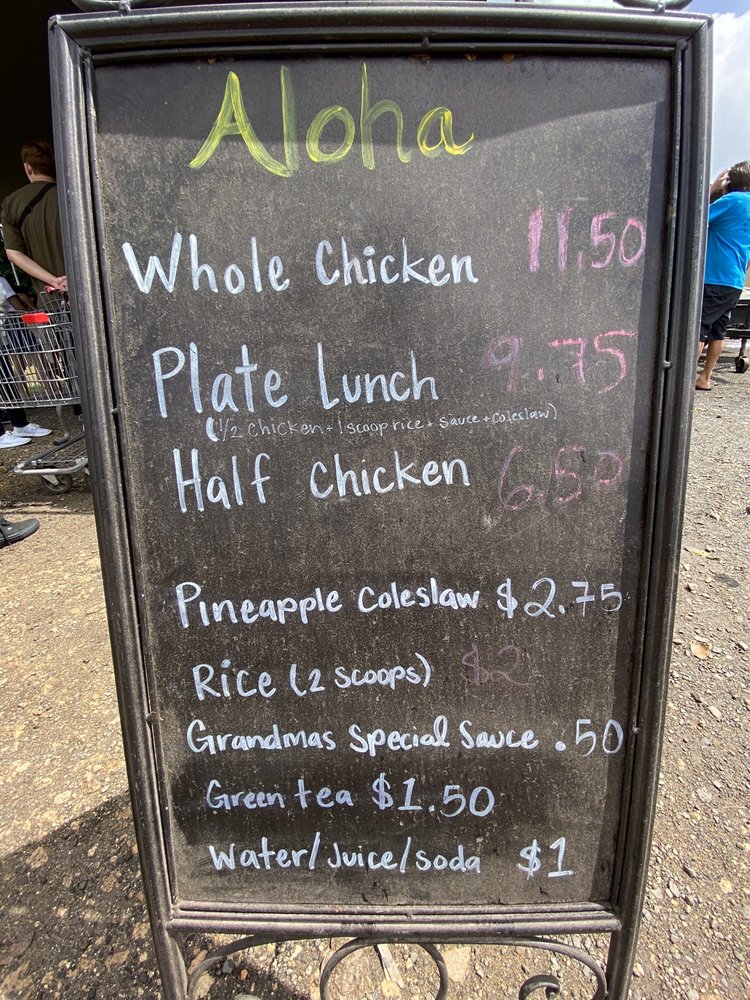 Aloha
Whole Chicken 11.50
Plate Lunch 9.75
(1/2 chicken + 1 scoop rice + sauce + coleslaw)
Half Chicken 6.50
Pineapple Coleslaw $2.75
Rice (2 scoops) $2
Grandmas Special Sauce .50
Green tea $1.50
Water/Juice/soda $1